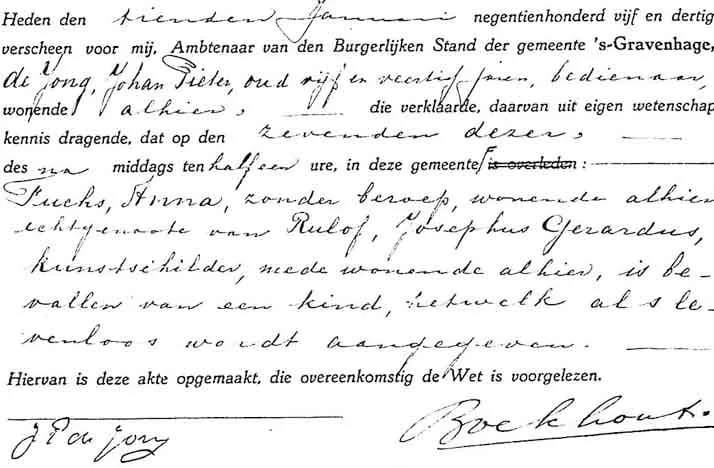 Heden den tienden Januari negentienhonderd vijf en dertig
verscheen voor mij, Ambtenaar van den Burgerlijken Stand der gemeente 's-Gravenhage,
de Jong, Johan Pieter, oud vijf en veertig jaren, bedienaar,
wonende alhier, die verklaarde, daarvan uit eigen wetenschap
kennis dragende, dat op den zevenden dezer,
des na middags ten half een ure, in deze gemeente is overleden:
Fuchs, Anna, zonder beroep, wonende alhier
echtgenoote van Rulof, Josephus Gerardus,
kunstschilder, mede wonende alhier, is be-
vallen van een kind, hetwelk als le-
venloos wordt aangegeven.
Hiervan is deze akte opgemaakt, die overeenkomstig de Wet is voorgelezen.
J P de Jong Boekhout.